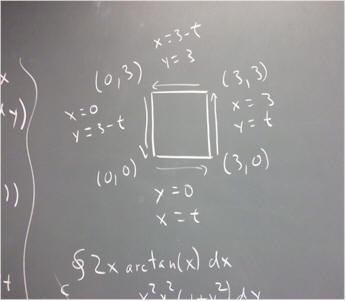 x = 3-t
y = 3
(0,3)
(3,3)
x
x=0
x = 3
y)
y = 3-t
y = t
(0,0)
(3,0)
y = 0
))
x = t
∮ 2x arctan(x) dx
t